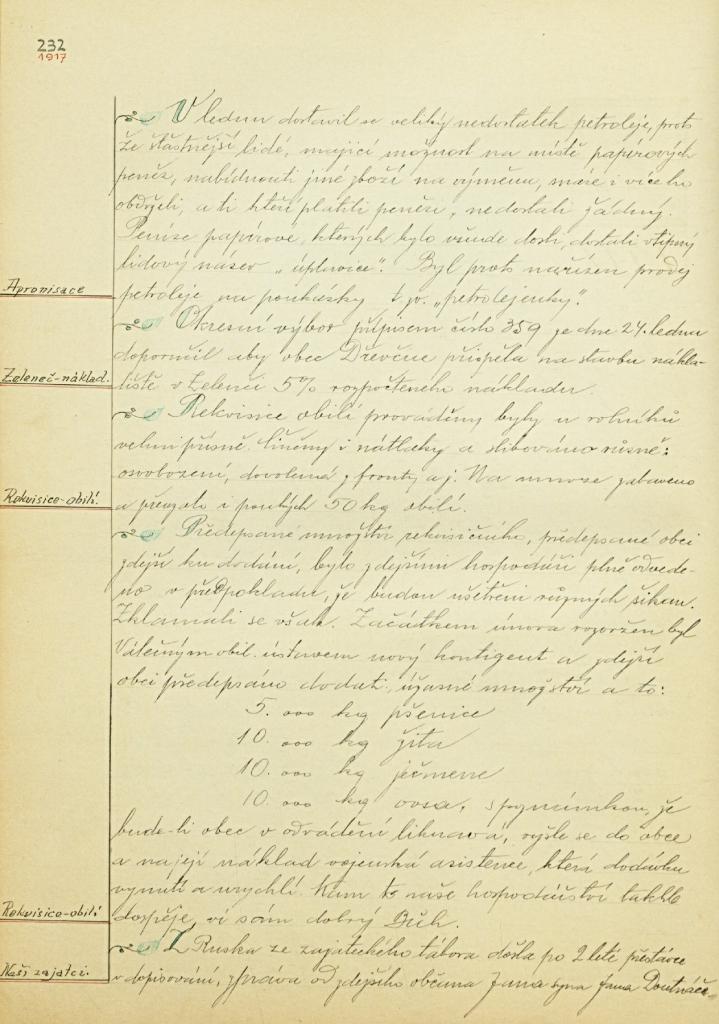 232
1917
V lednu dostavil se veliký nedostatek petroleje, proto
že šťastnější lidé, mající možnost na místě papírových
peněz, nabídnouti jiné zboží na výměnu, máze i více ho
obdrželi, a ti kteří platili penězi, nedostali žádný.
Peníze papírové, kterých bylo všude dosti, dostali vtipný
lidový název „úplavice". Byl proto nařízen prodej
Aprovisace
petroleje na poukázky t. zv. „petrolejenky".
Okresní výbor přípisem číslo 359 ze dne 24. ledna
doporučil aby obec Dřevčice přispěla na stavbu nákla-
Zeleneč-náklad.
diště v Zelenči 5% rozpočteného nákladu.
Rekvisice obilí prováděny byly u rolníků
velmi přísně. Činěny i nátlaky a slibováno různé:
osvobození, dovolená z fronty a j. Na mnoze zabaveno
Rekvisice-obilí.
a převzato i pouhých 50 kg obilí.
Předepsané množství rekvisičního, předepsané obci
zdejší ku dodání, bylo zdejšími hospodáři plně odvede-
no v předpokladu, že budou ušetřeni různých šikan.
Zklamali se však. Začátkem února rozvržen byl
Válečným obil. ústavem nový kontigent a zdejší
obci předepsáno dodati úžasné množství a to:
5.000 kg pšenice
10.000 kg žita
10.000 kg ječmene
10.000 kg ovsa, s poznámkou, že
bude-li obec v odvádění liknavá, vyšle se do obce
a na její náklad vojenská asistence, která dodávku
vynutí a urychlí. Kam to naše hospodářství takhle
Rekvisice-obilí
dospěje, ví sám dobrý Bůh.
Z Ruska ze zajateckého tábora došla po 2 leté přestávce
Naši zajatci.
v dopisování, zpráva od zdejšího občana Jana syna Jana Doutnáče-